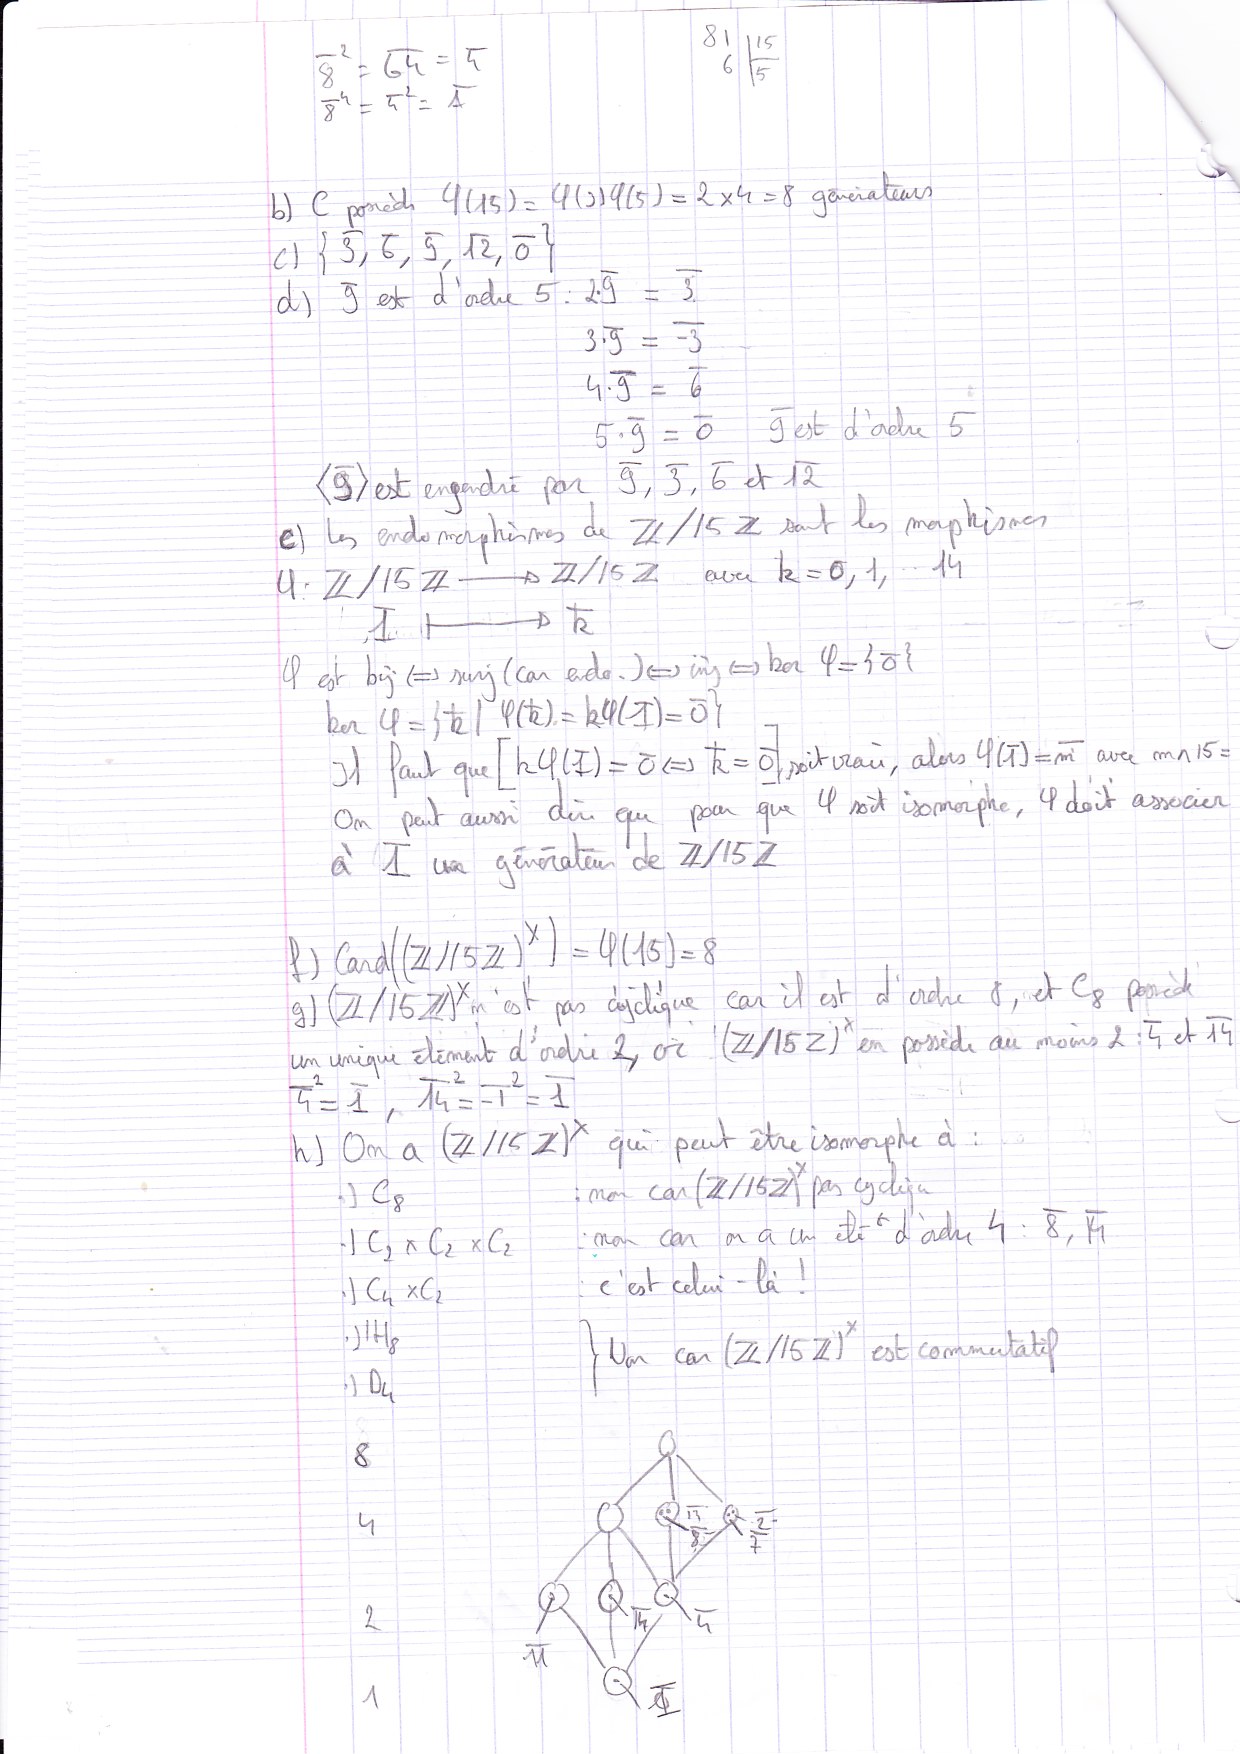 8̄² = 6̄4̄ = 4̄
8̄⁴ = 4̄² = 1̄
81 | 15
6 | 5
b) C possède φ(15) = φ(3)φ(5) = 2×4 = 8 générateurs
c) {3̄, 6̄, 9̄, 1̄2̄, 0̄}
d) 9̄ est d'ordre 5 : 2·9̄ = 3̄
3·9̄ = -̄3̄
4·9̄ = 6̄
5·9̄ = 0̄ 9̄ est d'ordre 5
⟨9̄⟩ est engendré par 9̄, 3̄, 6̄ et 1̄2̄
e) Les endomorphismes de ℤ/15ℤ sont les morphismes
φ: ℤ/15ℤ → ℤ/15ℤ avec k = 0, 1, .. 14
1̄ ↦ k̄
φ est bij ⇔ surj (car endo.) ⇔ inj ⇔ ker φ = {0̄}
ker φ = {k̄ | φ(k̄) = kφ(1̄) = 0̄}
Il faut que [kφ(1̄) = 0̄ ⇔ k̄ = 0̄] soit vrai, alors φ(1̄) = m̄ avec m∧15 =
On peut aussi dire que pour que φ soit isomorphe, φ doit associer
à 1̄ un générateur de ℤ/15ℤ
f) Card((ℤ/15ℤ)ˣ) = φ(15) = 8
g) (ℤ/15ℤ)ˣ n'est pas cyclique car il est d'ordre 8, et C₈ possède
un unique élément d'ordre 2, or (ℤ/15ℤ)ˣ en possède au moins 2 : 4̄ et 1̄4̄
4̄² = 1̄, 1̄4̄² = -̄1̄² = 1̄
h) On a (ℤ/15ℤ)ˣ qui peut être isomorphe à :
.) C₈ : non car (ℤ/15ℤ)ˣ pas cyclique
.) C₂ × C₂ × C₂ : non car on a un élᵗ d'ordre 4 : 8̄, 1̄4̄
.) C₄ × C₂ : c'est celui-là !
.) ℍ₈
} Non car (ℤ/15ℤ)ˣ est commutatif
.) D₄
8
4 1̄3̄ 8̄ 2̄ 7̄
2 1̄1̄ 1̄4̄ 4̄
1 1̄